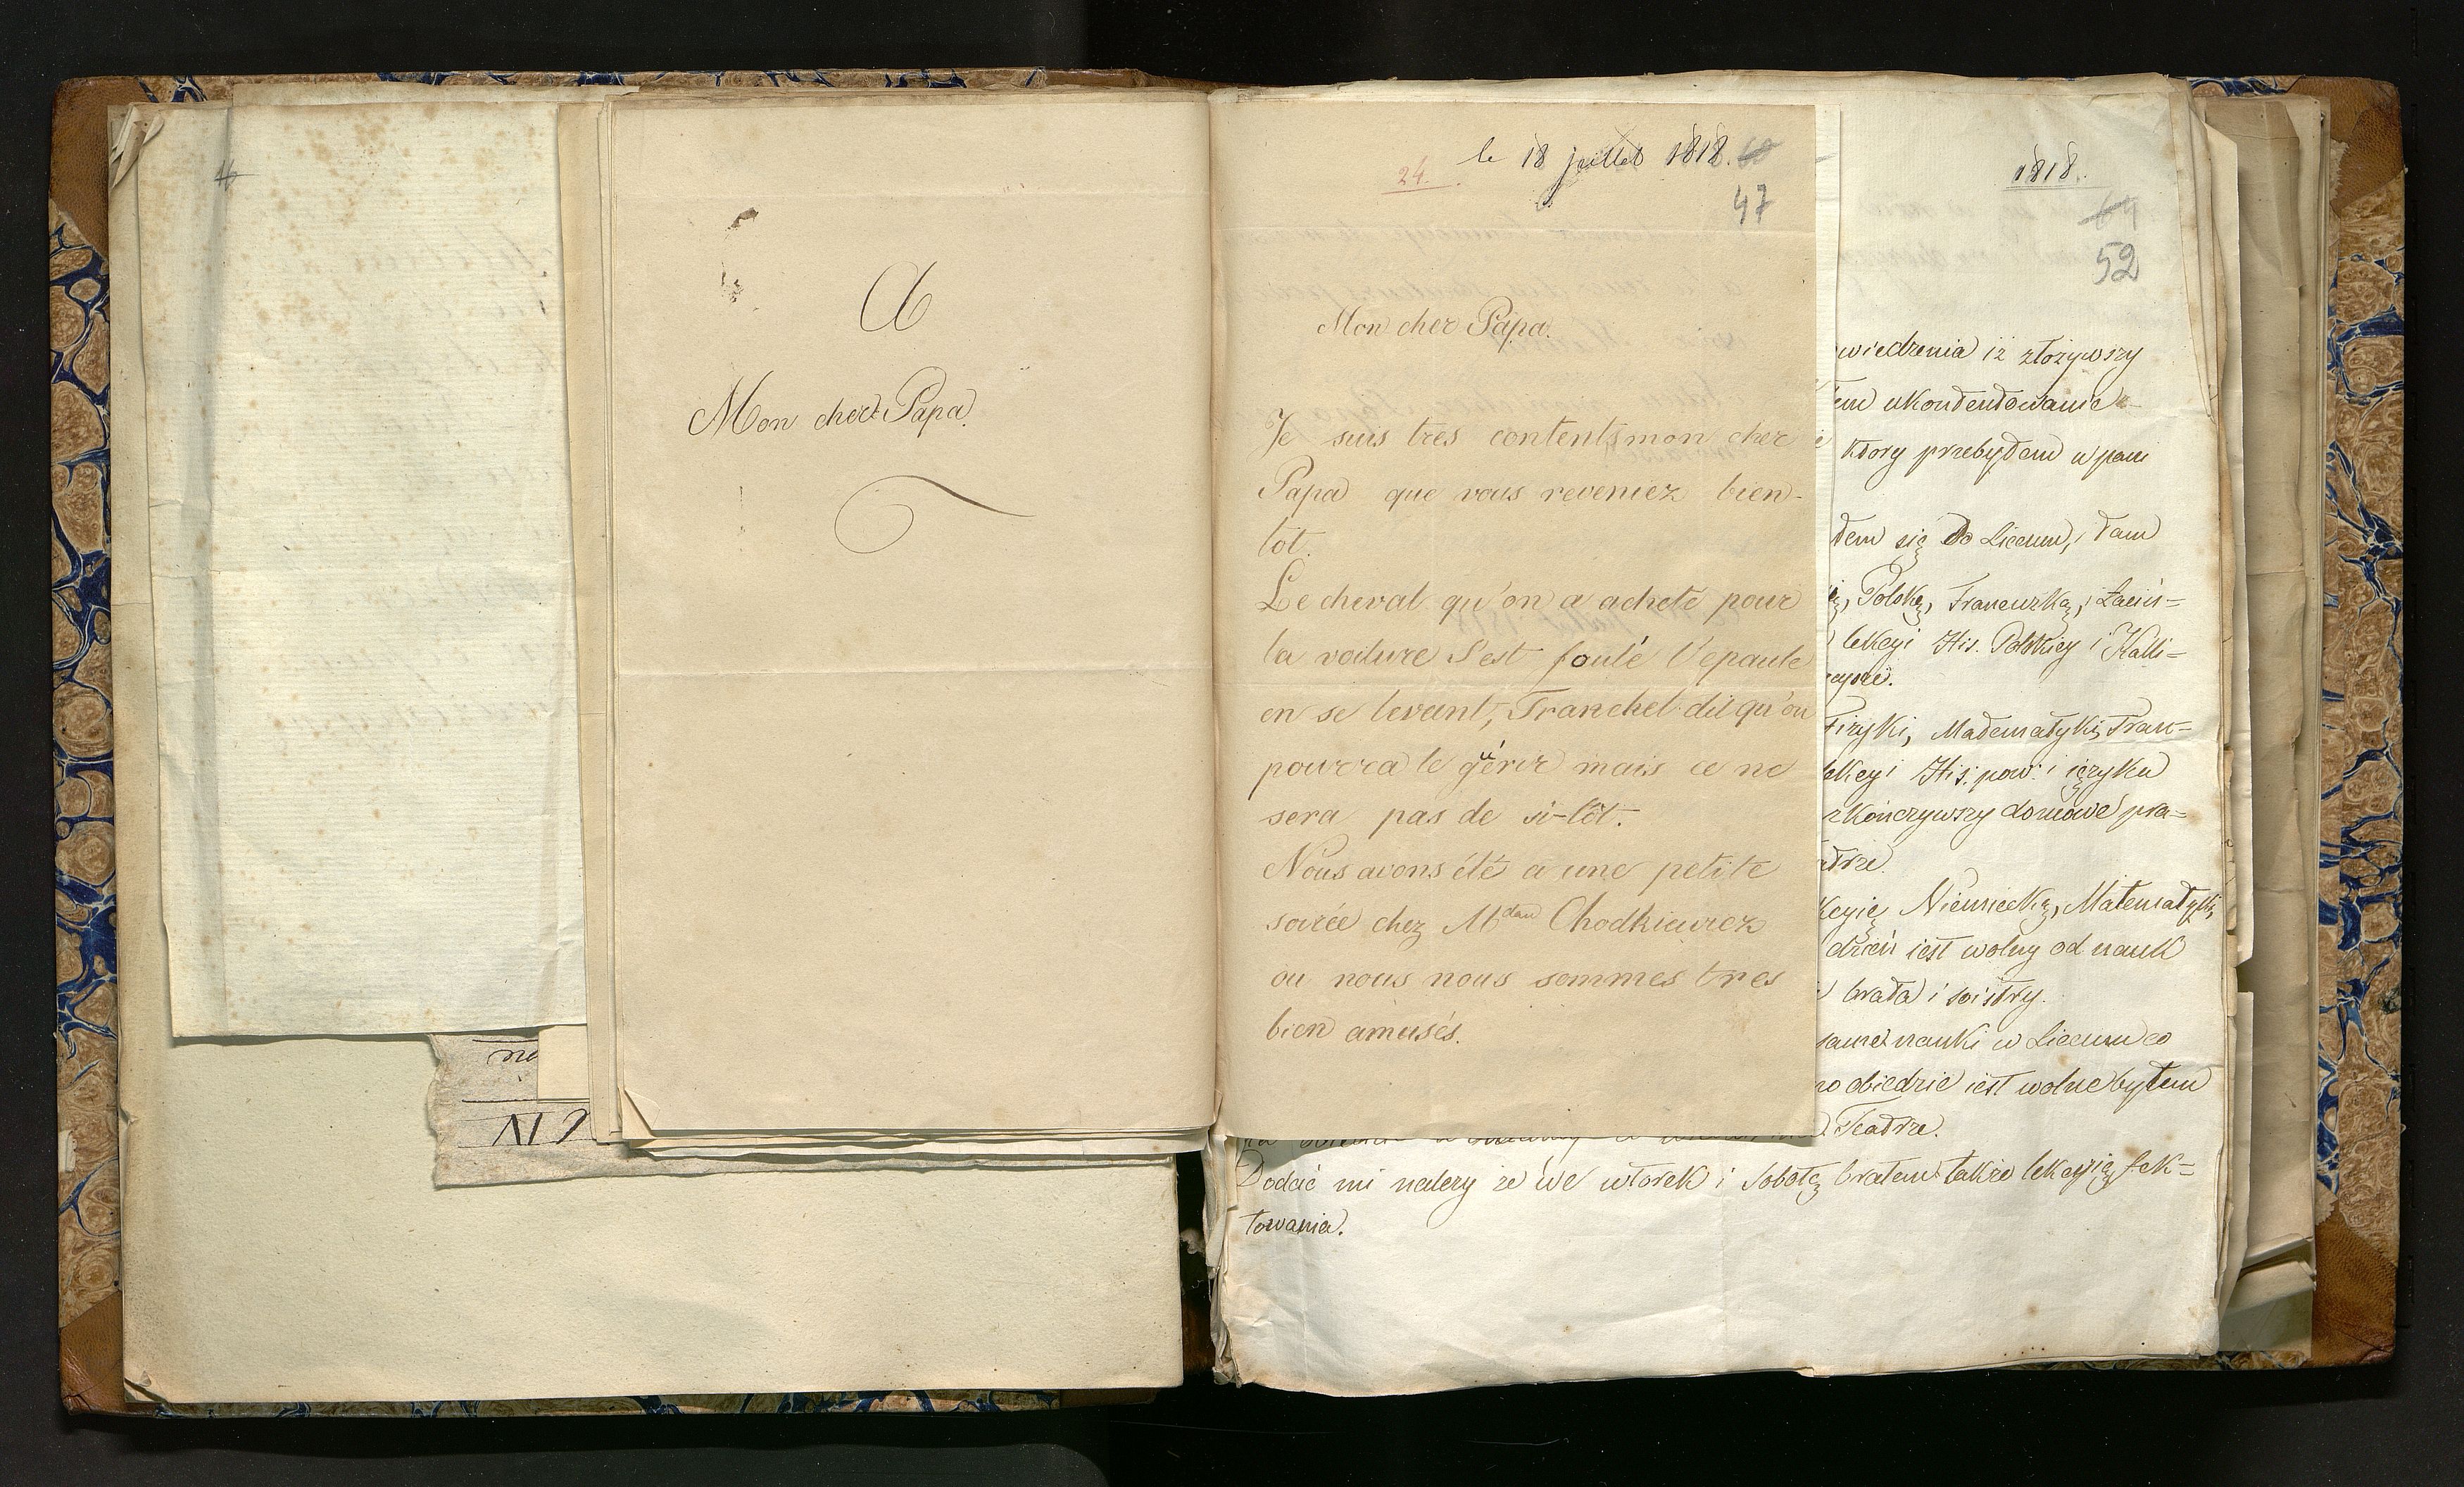 A
Mon cher Papa.
24. le 18 juillet 1818.
47
Mon cher Papa.
Je suis tres contents mon cher
Papa que vous reveniez bien-
tot.
Le cheval qu'on a acheté pour
la voiture s'est foulé l'epaule
en se levant, Franchet dit qu'on
pourra le guérir mais ce ne
sera pas de si-tôt.
Nous avons été a une petite
soirée chez Mdam Chodkiewicz
ou nous nous sommes tres
bien amusés.
1818.
64
52
wiedzenia iż złożywszy
ukontentowanie
który przebyłem w pans
łem się do Liceum, i tam
Polską, Francuzką, i Łaciń=
lekcyi His. Polskiey i Kalli=
Fizyki, Matematyki, Fran=
lekcyi His: pow: i ięzyka
skończywszy domowe pra=
atrze.
kcyię Niemiecką, Matematyki,
dzień iest wolny od nauk
brata i siostry.
same nauki w Liceum co
po obiedzie iest wolne byłem
Teatrze.
Dodać mi należy że we wtorek i Sobotę brałem także lekcyię fek=
towania.